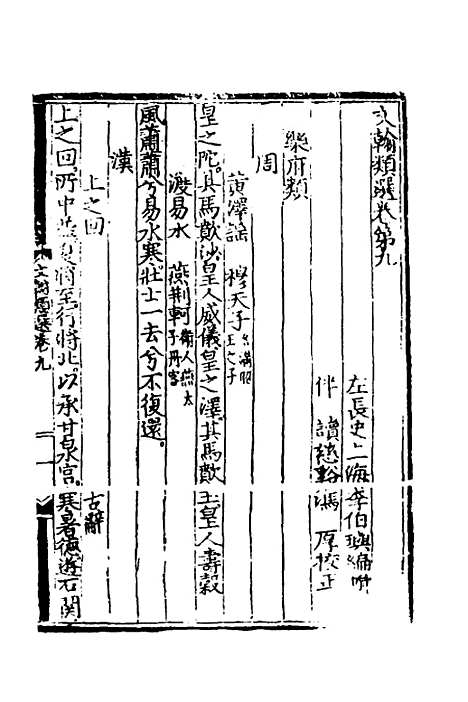 文翰類選卷第九
左長史上海李伯璵編輯
伴讀慈谿馮厚校正
樂府類
周
黃澤謠 穆天子名滿昭王之子
皇之陀其馬歕沙皇人威儀皇之澤其馬歕玉皇人壽穀
渡易水 燕荆軻衛人燕太子丹客
風蕭蕭兮易水寒壯士一去兮不復還
漢
上之回 古辭
上之回所中益夏將至行將北以承甘泉宮寒暑德遊石關
文翰類選卷九